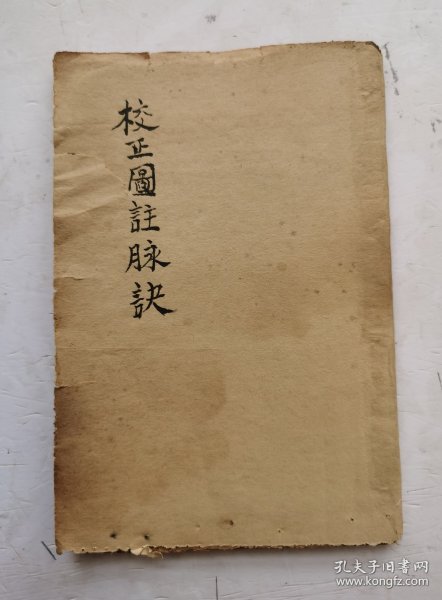 校正圖註脉訣
孔夫子旧书网
www.kongfz.com